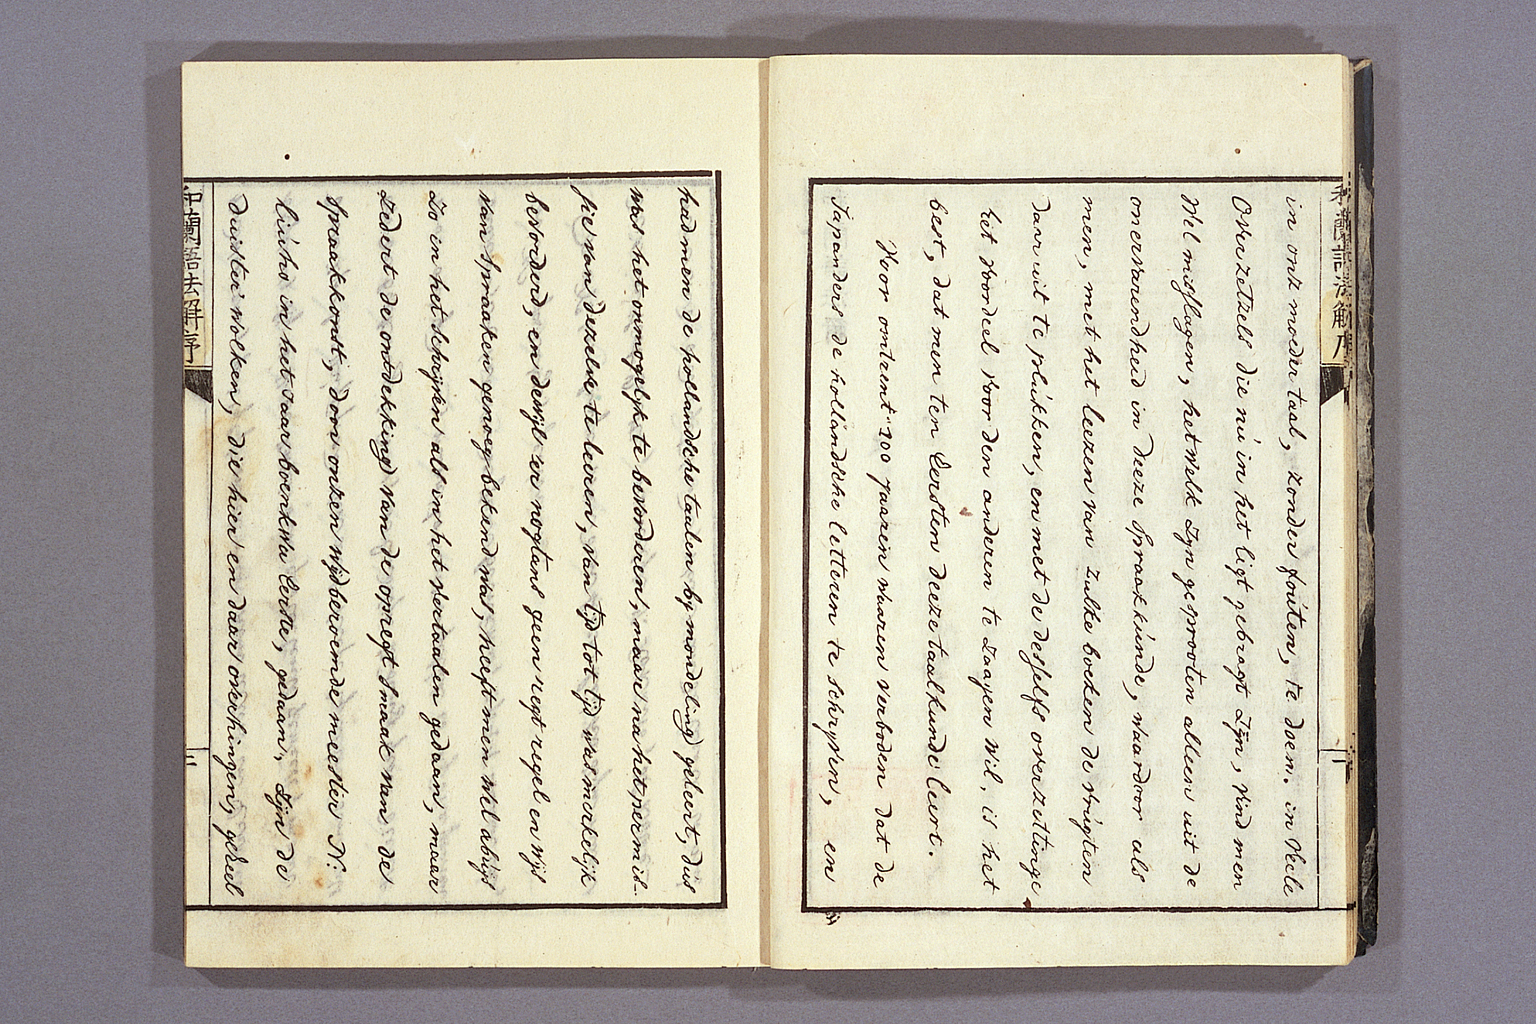 和蘭語法解序
in onk moeder taal, zonder foúten, te doen. in Veele
Overzetzels die nú in het ligt gebragt Zÿn, vind men
Wel misslagen, hetwelk Zÿn gesprooten alleen uit de
onervarendheid in deeze Spraakkúnde, waardoor als
men, met het leezen van zulke boeken de vrúgten
daar uit te plúkken, en met de desselfs overzettinge
het voordeel voor den anderen te Zaayen Wil, is het
best, dat men ten Eersten deeze taalkunde leere.
Voor omtrent 100 jaaren waaren verboden dat de
Japanders de hollandsche letteren te schryven, en
had men de hollandsche taalen by mondeling geleert, dús
was het onmogelyk te bevorderen, maar na het permis-
sie van dezelve te leeren, van tÿd tot tÿd was merkelÿk
bevorderd, en dewÿl er nogtans geen regt regel en wÿs
van spraaken genoeg bekend was, heeft men wel abúÿs
Zo in het schrÿven als in het vertaalen gedaan, maar
Zedert de ontdekking van de opregt smaak van de
Spraakkonst, door onzen wÿdberoemde meester N:
liúho in het Jaar boenkwa Eerste, gedaan, Zÿn de
duÿster Wolken, die hier en daar overhingen, geheel
和蘭語法解序
二